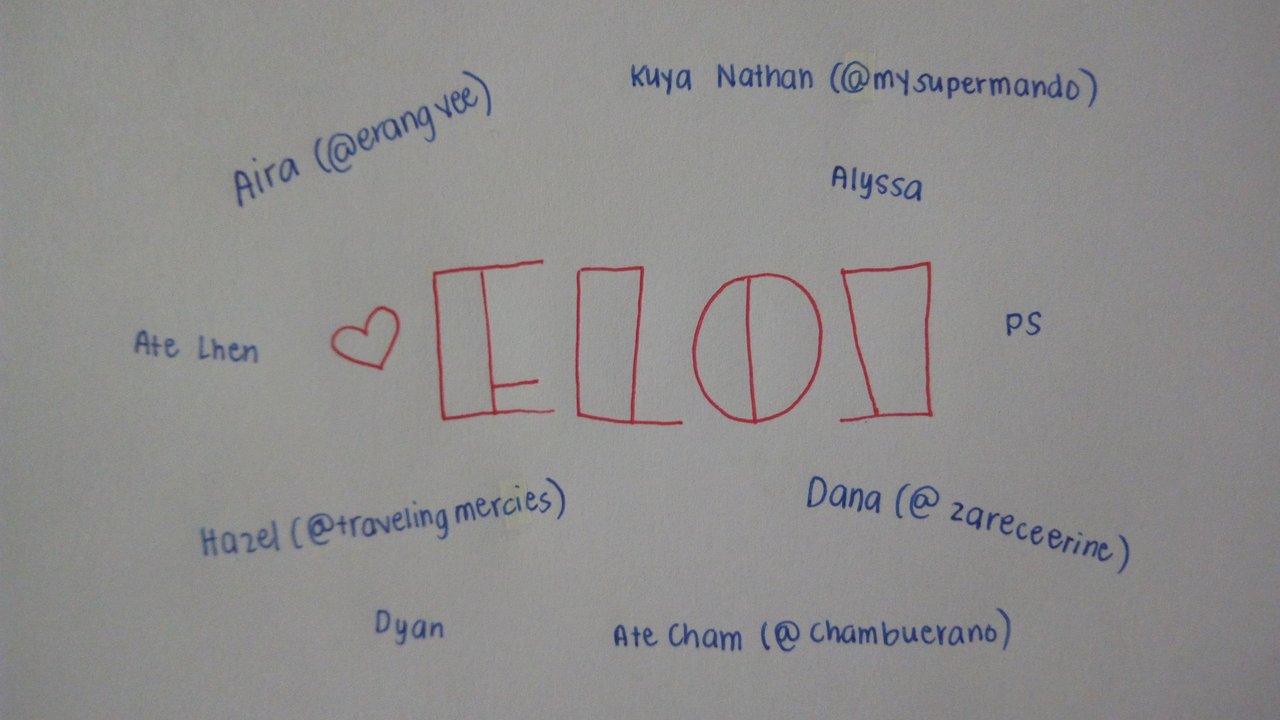 Kuya Nathan (@mysupermando)
Aira (@erangvee)
Alyssa
ELOI
Ate Lhen
PS
Hazel (@travelingmercies)
Dana (@zareceerine)
Dyan
Ate Cham (@chambuerano)